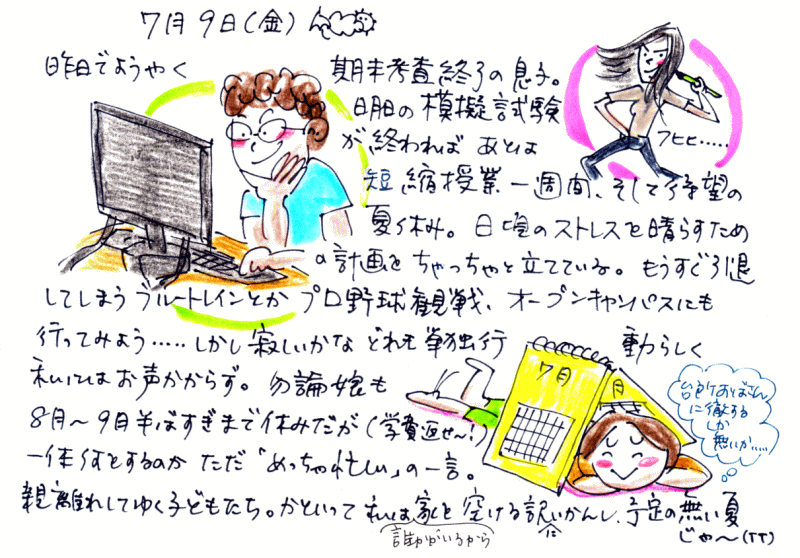 7月9日(金)
昨日でようやく 期末考査終了の息子。
明日の模擬試験
が終われば あとは
短縮授業一週間、そして待望の
夏休み。日頃のストレスを晴らすため
の計画をちゃっちゃと立てている。もうすぐ引退
してしまうブルートレインとか プロ野球観戦、オープンキャンパスにも
行ってみよう……しかし寂しいかな どれも単独行動らしく
私にはお声かからず。勿論娘も
8月〜9月半ばすぎまで休みだが(学費返せ〜!)
一体何をするのか ただ「めっちゃ忙しい」の一言。
親離れしてゆく子どもたち。かといって 私は家を空ける訳にいかんし、予定の無い夏
誰かがいるから
じゃ〜(TT)
フヒヒ……
7月
月
台所おばさん
に徹する
しか
無いか……